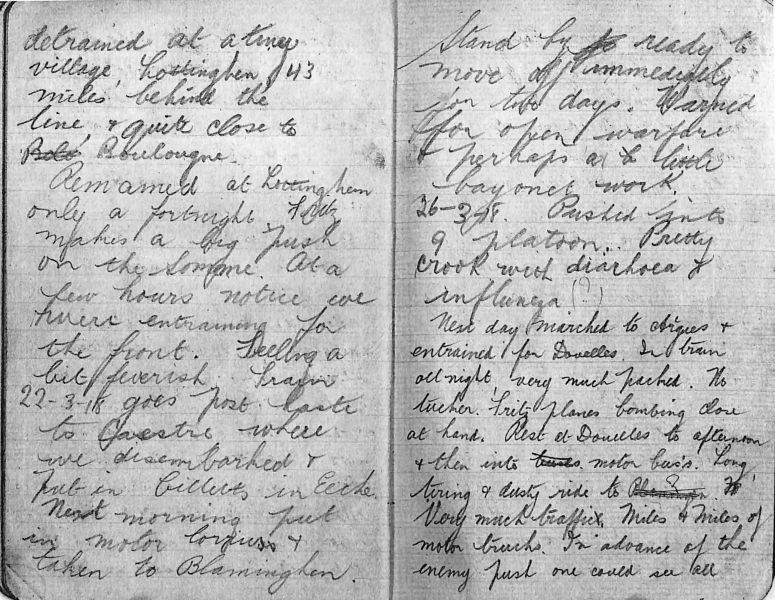 detrained at a tiny
village, Lottinghen, 43
miles behind the
line, & quite close to
Bolo Boulougne.
Remained at Lottinghem
only a fortnight. Fritz
makes a big push
on the Somme. At a
few hours notice we
were entraining for
the front. Feeling a
bit feverish. Train
22-3-18 goes post haste
to Caestre where
we disembarked &
put in billets in Eecke.
Next morning put
in motor lorries &
taken to Blaminghen.
Stand by to ready to
move off immediately
for two days. Warned
for open warfare
& perhaps a little
bayonet work.
26-3-18. Pushed into
9 platoon. Pretty
crook with diarhoea &
influenza (?)
Next day marched to Arques &
entrained for Doulles. In train
all night, very much packed. No
tucker. Fritz planes bombing close
at hand. Rest at Doulles to afternoon
& then into buses motor bus's. Long,
tiring & dusty ride to ?
Very much traffic, Miles & Miles of
motor trucks. In advance of the
enemy push one could see all